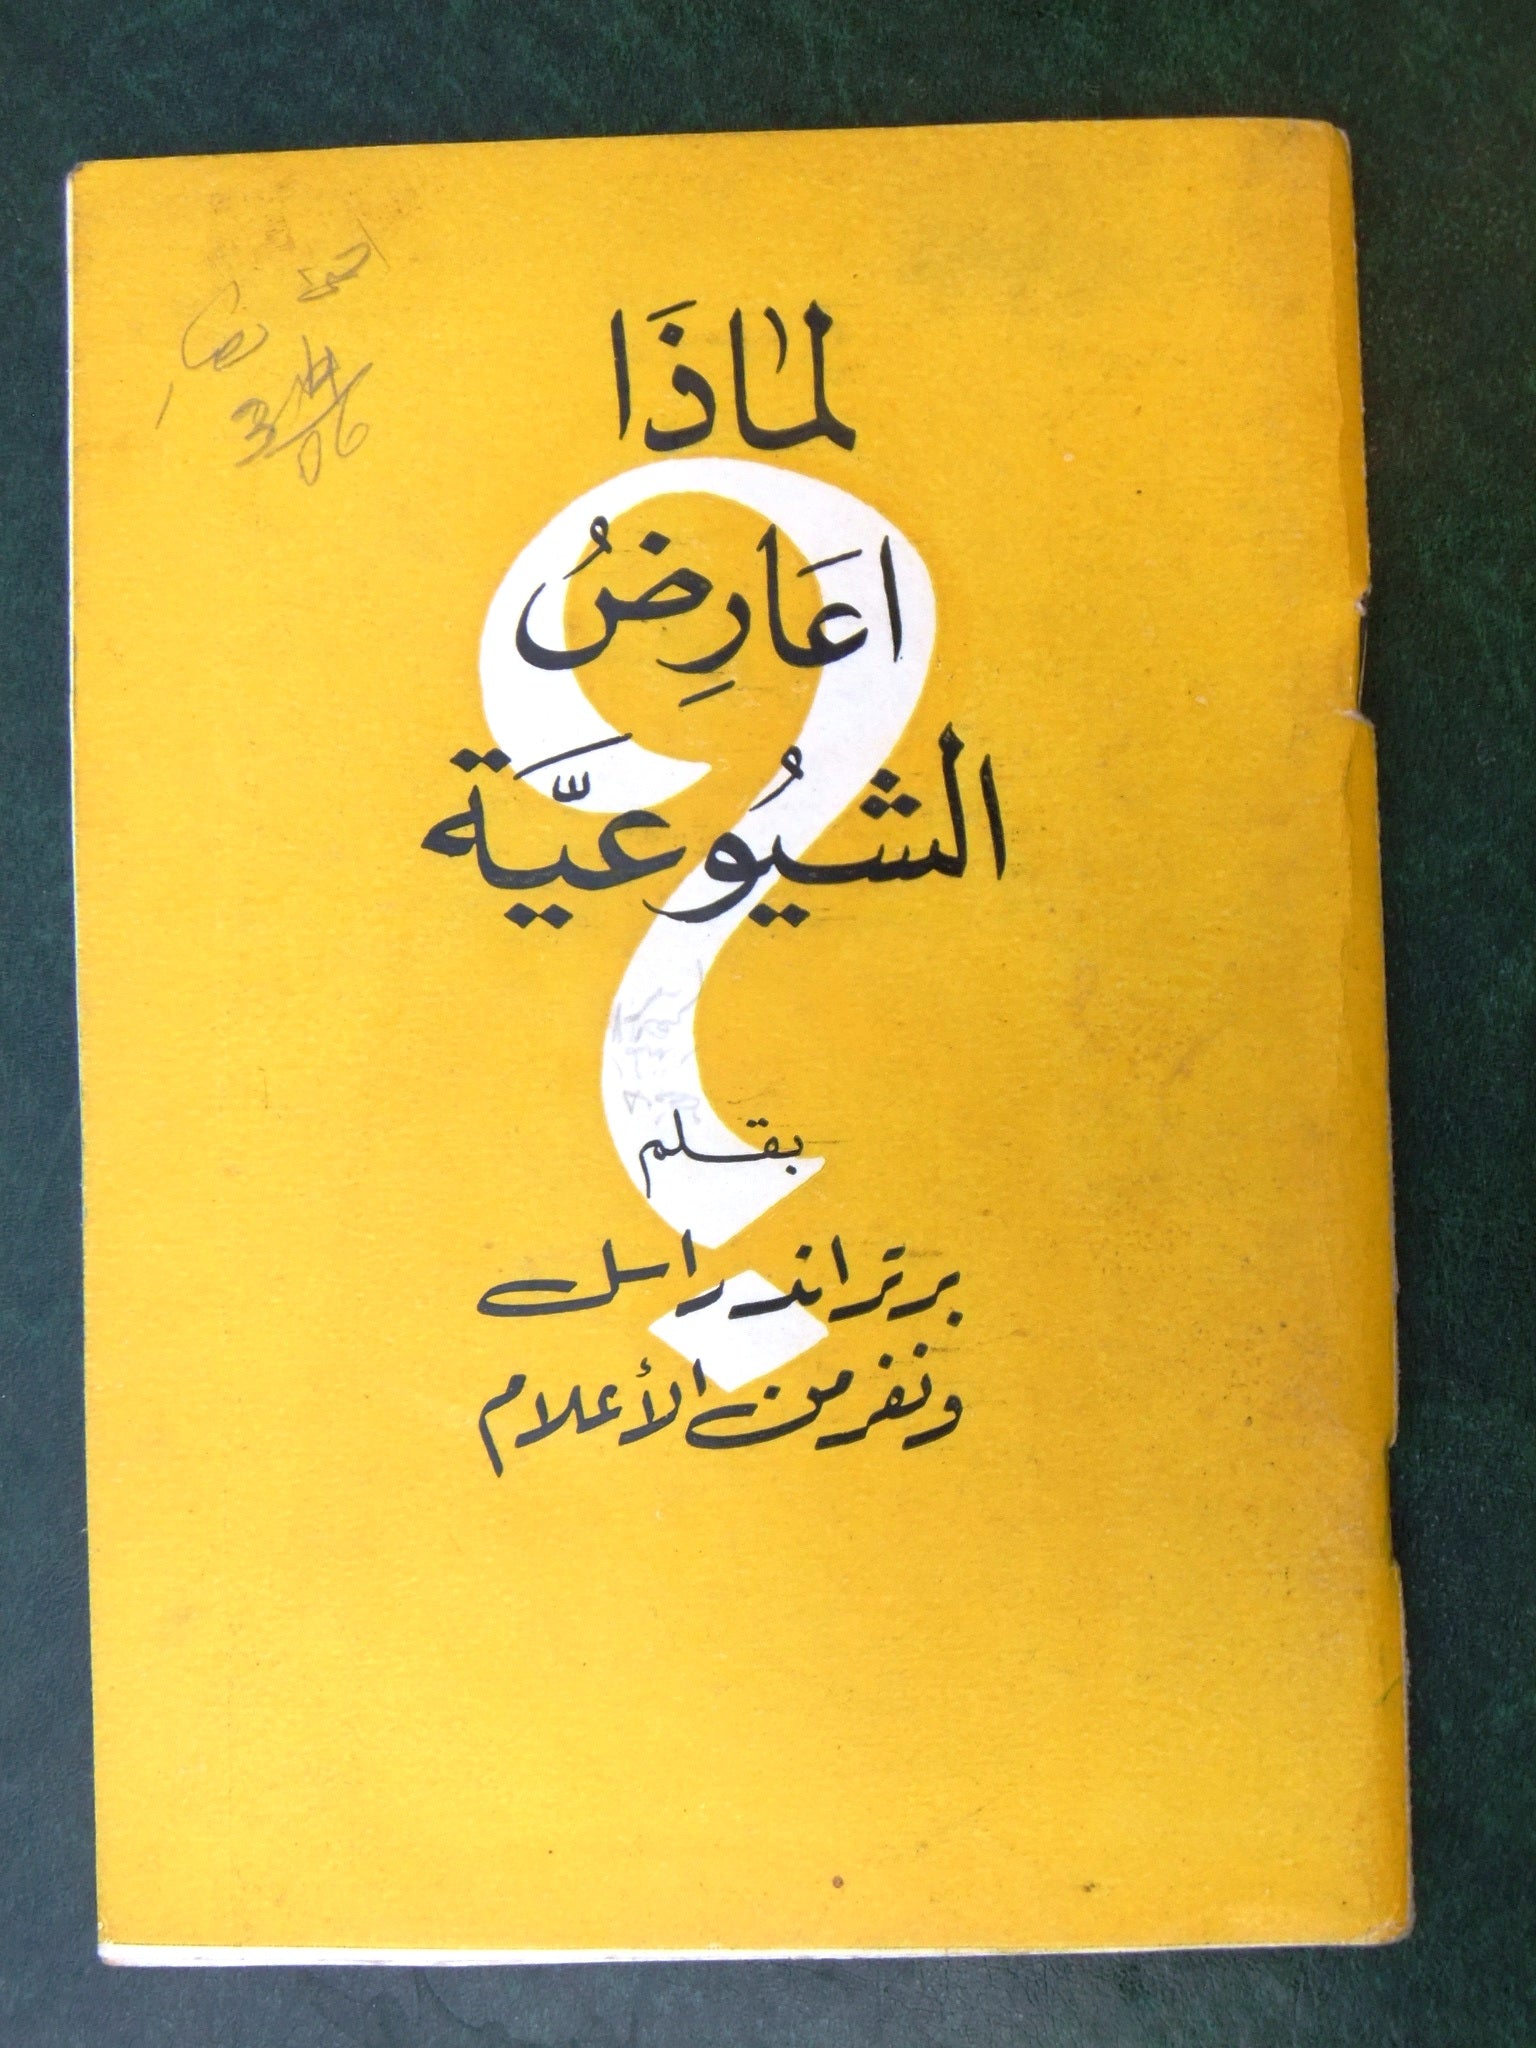 لماذَا
اعَارِضُ
الشيُوعيَّة
؟
بقلم
برتراند راسل
ونفر من الأعلام